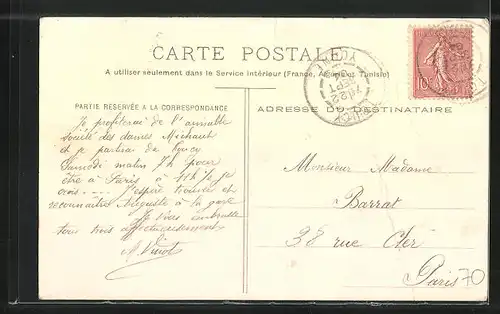 CARTE POSTALE
A utiliser seulement dans le Service Intérieur (France, Algérie et Tunisie)
PARTIE RÉSERVÉE A LA CORRESPONDANCE
ADRESSE DU DESTINATAIRE
Je profiterai de l'aimable
Société des dames Michaut
et je partirai de
Samedi matin 7h pour
être à Paris à 11h ½ je
crois .... J'espère trouver et
reconnaître Auguste à la gare
Je vous embrasse
tous trois affectueusement
A.
Monsieur Madame
Barrat
38 rue Cler
Paris
70
10
SEPT